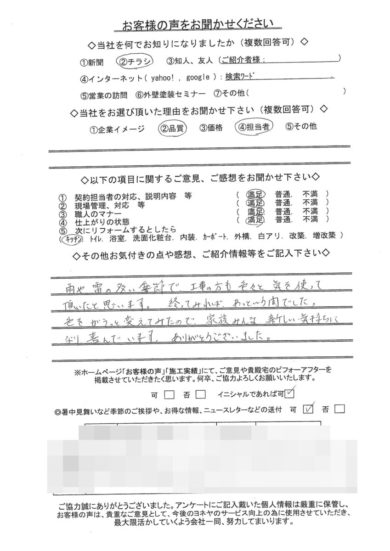 お客様の声をお聞かせください
◇当社を何でお知りになりましたか（複数回答可）◇
①新聞 ②チラシ ③知人、友人（ご紹介者様：　　　）
④インターネット（yahoo!，google）：検索ワード
⑤営業の訪問 ⑥外壁塗装セミナー ⑦その他(　　　)
◇当社をお選び頂いた理由をお聞かせ下さい（複数回答可）◇
①企業イメージ ②品質 ③価格 ④担当者 ⑤その他
◇以下の項目に関するご意見、ご感想をお聞かせ下さい◇
① 契約担当者の対応、説明内容 等 （ 満足 普通. 不満 ）
② 現場管理、対応 等 （ 満足 普通. 不満 ）
③ 職人のマナー （ 満足 普通. 不満 ）
④ 仕上がりの状態 （ 満足 普通. 不満 ）
⑤ 次にリフォームするとしたら
（キッチン トイレ. 浴室. 洗面化粧台. 内装. カーポート. 外構. 白アリ. 改築. 増改築）
◇その他お気付きの点や感想、ご紹介情報等をご記入下さい◇
雨や雷の多い毎日で 工事の方も 色々と 気を使って
頂いたと思います。終ってみれば、あっという間でした。
色をがらっと変えてみたので 家族みんな 新しい気持ちに
なり 喜んでいます。ありがとうございました。
※ホームページ「お客様の声」「施工実績」にて、ご意見や貴殿宅のビフォーアフターを
掲載させていただきたく思います。何卒、ご協力よろしくお願いいたします。
可 □ 否 □ イニシャルであれば可 ☑
◎暑中見舞いなど季節のご挨拶や、お得な情報、ニュースレターなどの送付 可 ☑ 否 □
ご協力誠にありがとうございました。アンケートにご記入戴いた個人情報は厳重に保管し、
お客様の声は、貴重なご意見として、今後のヨネヤのサービス向上の為に使用させていただき、
最大限活かしていくよう会社一同、努力してまいります。